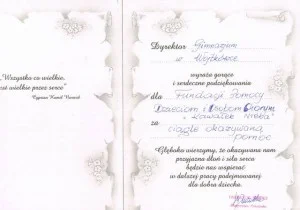 „Wszystko co wielkie,
jest wielkie przez serce”
Cyprian Kamil Norwid
Dyrektor Gimnazjum
w Wojtkówce
wyraża gorące
i serdeczne podziękowania
dla Fundacji Pomocy
Dzieciom i Osobom Chorym
„Kawałek Nieba”
za ciągle okazywaną
pomoc
Głęboko wierzymy, że okazywana nam
przyjazna dłoń i siła serca
będzie nas wspierać
w dalszej pracy podejmowanej
dla dobra dziecka.